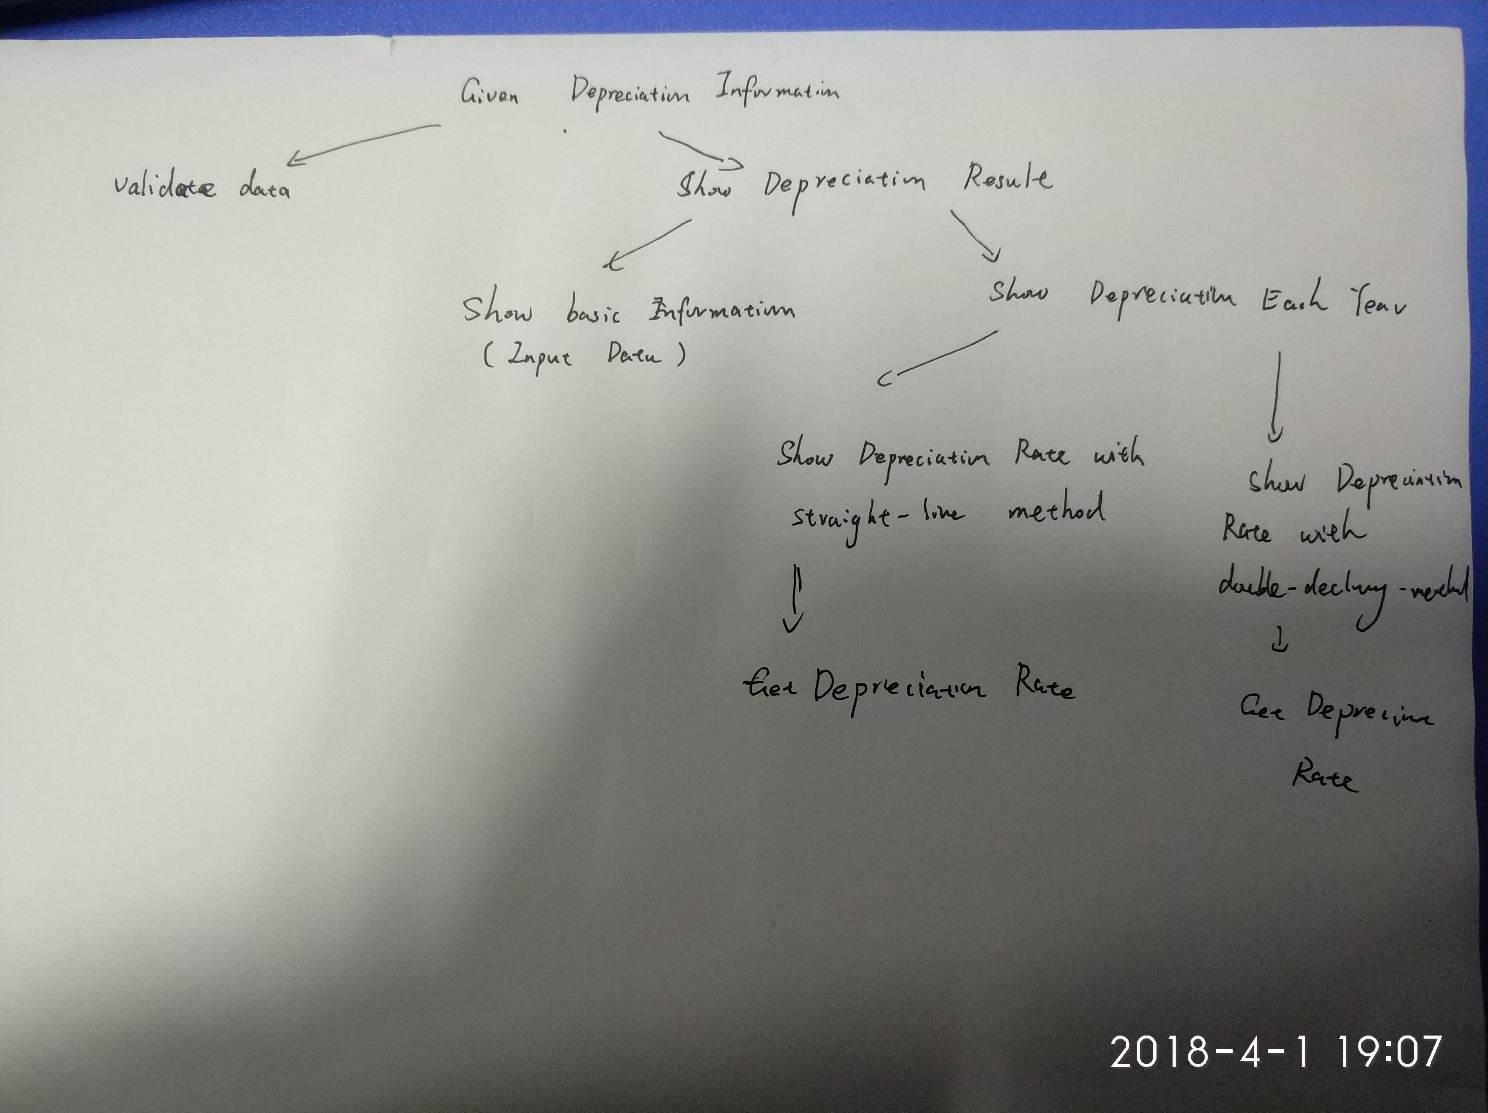 Given Depreciation Information
validate data
Show Depreciation Result
Show basic Information
( Input Data )
Show Depreciation Each Year
Show Depreciation Rate with
straight-line method
Show Depreciation
Rate with
double-declining-method
Get Depreciation Rate
Get Depreciation
Rate
2018-4-1 19:07